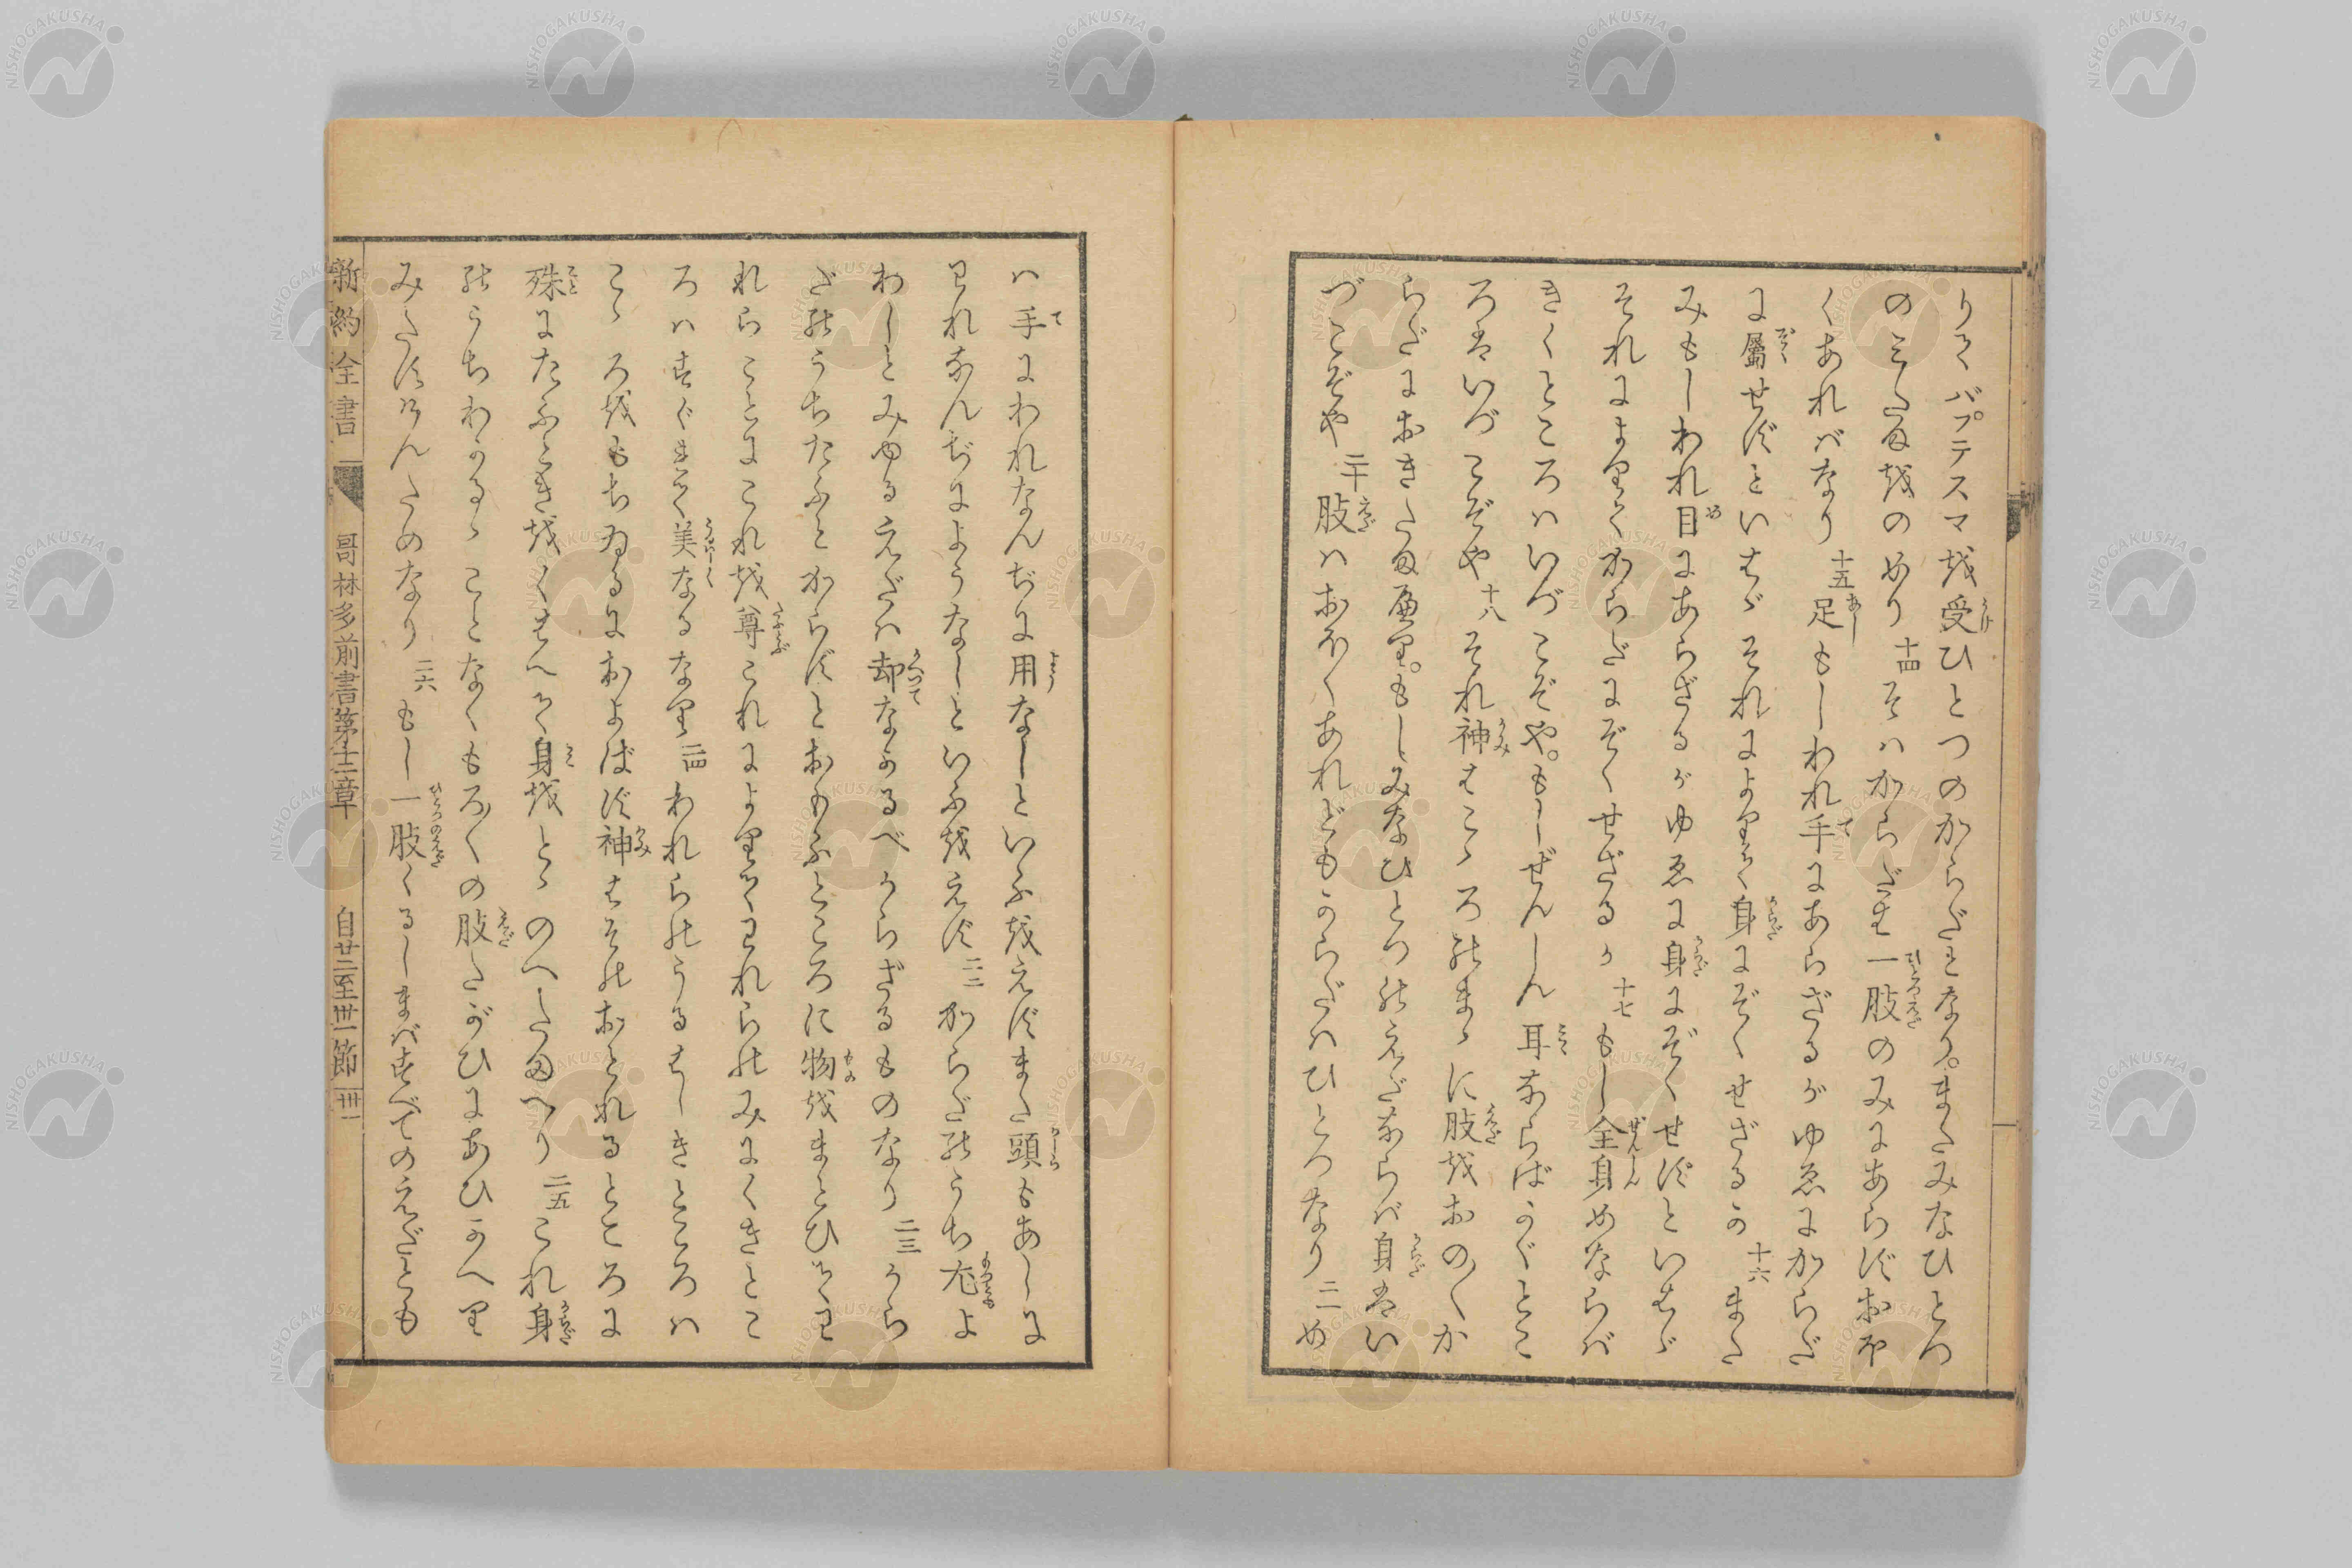 りてバプテスマを受ひとつのからだとなり。またみなひとつ
のミたまをのめり 十四 そハからだは一肢のみにあらずおほ
くあれバなり 十五 足もしわれ手にあらざるがゆゑにからだ
に屬せずといはゞそれによりて身にぞくせざるか 十六 また
みもしわれ目にあらざるがゆゑに身にぞくせずといはゞ
それによりてからだにぞくせざるか 十七 もし全身めならバ
きくところハいづこぞや。もしぜんしん耳ならばかぐとこ
ろはいづこぞや 十八 それ神はこゝろのまゝに肢をおの〱か
らだにおきたまへり。もしみなひとつのえだならバ身はい
づこぞや 二十 肢ハおほくあれどもからだハひとつなり 二一 め
ハ手にわれなんぢに用なしといふをえずまた頭もあしに
われなんぢにようなしといふをえず 二二 からだのうち尤よ
わしとみゆるえだハ却てなかるべからざるものなり 二三 から
だのうちたふとからずとおもふところに物をまとひてわ
れらことにこれを尊これによりてわれらのみにくきとこ
ろハすぐまて美なるなり 二四 われらのうるはしきところハ
こゝろをもちゐるにおよばず神はそのおとれるところに
殊にたふときをくはへて身をとゝのへたまへり 二五 これ身
のうちわかるゝことなくもろ〱の肢たがひにあひかへり
みたすけんためなり 二六 もし一肢くるしまバすべてのえだとも
新約全書 哥林多前書第十二章 自廿二至卅一節 卅一